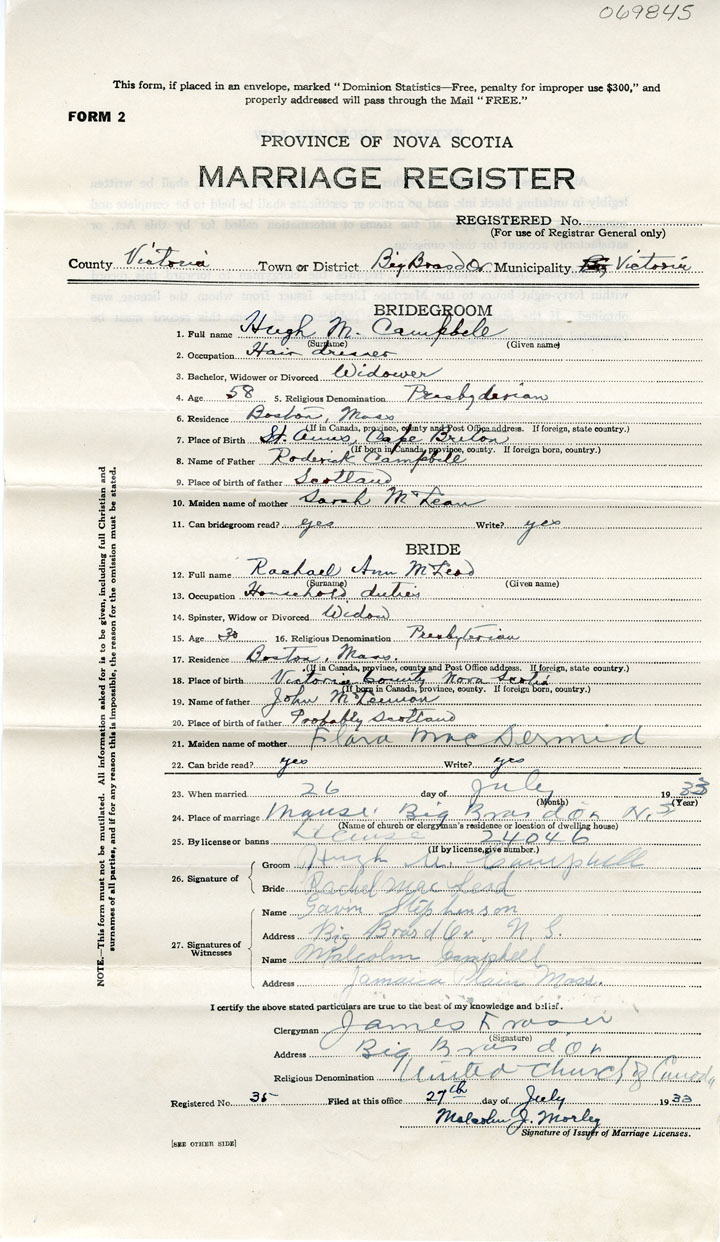 069845
This form, if placed in an envelope, marked "Dominion Statistics—Free, penalty for improper use $300," and
properly addressed will pass through the Mail "FREE."
FORM 2
PROVINCE OF NOVA SCOTIA
MARRIAGE REGISTER
REGISTERED No.
(For use of Registrar General only)
County Victoria Town or District Big Bras d'Or Municipality Victoria
BRIDEGROOM
1. Full name Hugh M. Campbell
(Surname) (Given name)
2. Occupation Hair dresser
3. Bachelor, Widower or Divorced Widower
4. Age 58 5. Religious Denomination Presbyterian
6. Residence Boston, Mass
(If in Canada, province, county and Post Office address. If foreign, state country.)
7. Place of Birth St. Anns, Cape Breton
(If born in Canada, province, county. If foreign born, country.)
8. Name of Father Roderick Campbell
9. Place of birth of father Scotland
10. Maiden name of mother Sarah McLean
11. Can bridegroom read? yes Write? yes
BRIDE
12. Full name Rachael Ann McLeod
(Surname) (Given name)
13. Occupation Household duties
14. Spinster, Widow or Divorced Widow
15. Age 16. Religious Denomination Presbyterian
17. Residence Boston, Mass.
(If in Canada, province, county and Post Office address. If foreign, state country.)
18. Place of birth Victoria County Nova Scotia
(If born in Canada, province, county. If foreign born, country.)
19. Name of father John McLennan
20. Place of birth of father Probably Scotland
21. Maiden name of mother Flora MacDermid
22. Can bride read? yes Write? yes
23. When married 26 day of July 1933
(Month) (Year)
24. Place of marriage Manse Big Bras d'Or N.S
(Name of church or clergyman's residence or location of dwelling house)
25. By license or banns License 34046
(If by license, give number.)
26. Signature of Groom Hugh M. Campbell
Bride Rachel MacLeod
27. Signatures of Witnesses
Name Gavin Stephenson
Address Big Bras d Or N. S.
Name Malcolm Campbell
Address Jamaica Plain Mass.
I certify the above stated particulars are true to the best of my knowledge and belief.
Clergyman James Fraser
(Signature)
Address Big Bras d'Or
Religious Denomination United Church of Canada
Registered No. 35 Filed at this office 27th day of July 1933
Malcolm J. Morley
Signature of Issuer of Marriage Licenses.
[SEE OTHER SIDE]
NOTE.—This form must not be mutilated. All information asked for is to be given, including full Christian and
surnames of all parties, and if for any reason this is impossible, the reason for the omission must be stated.